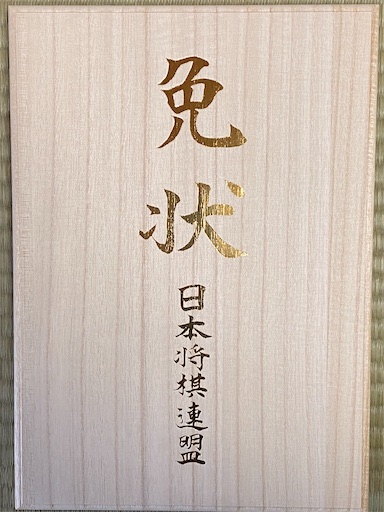 免状
日本将棋連盟